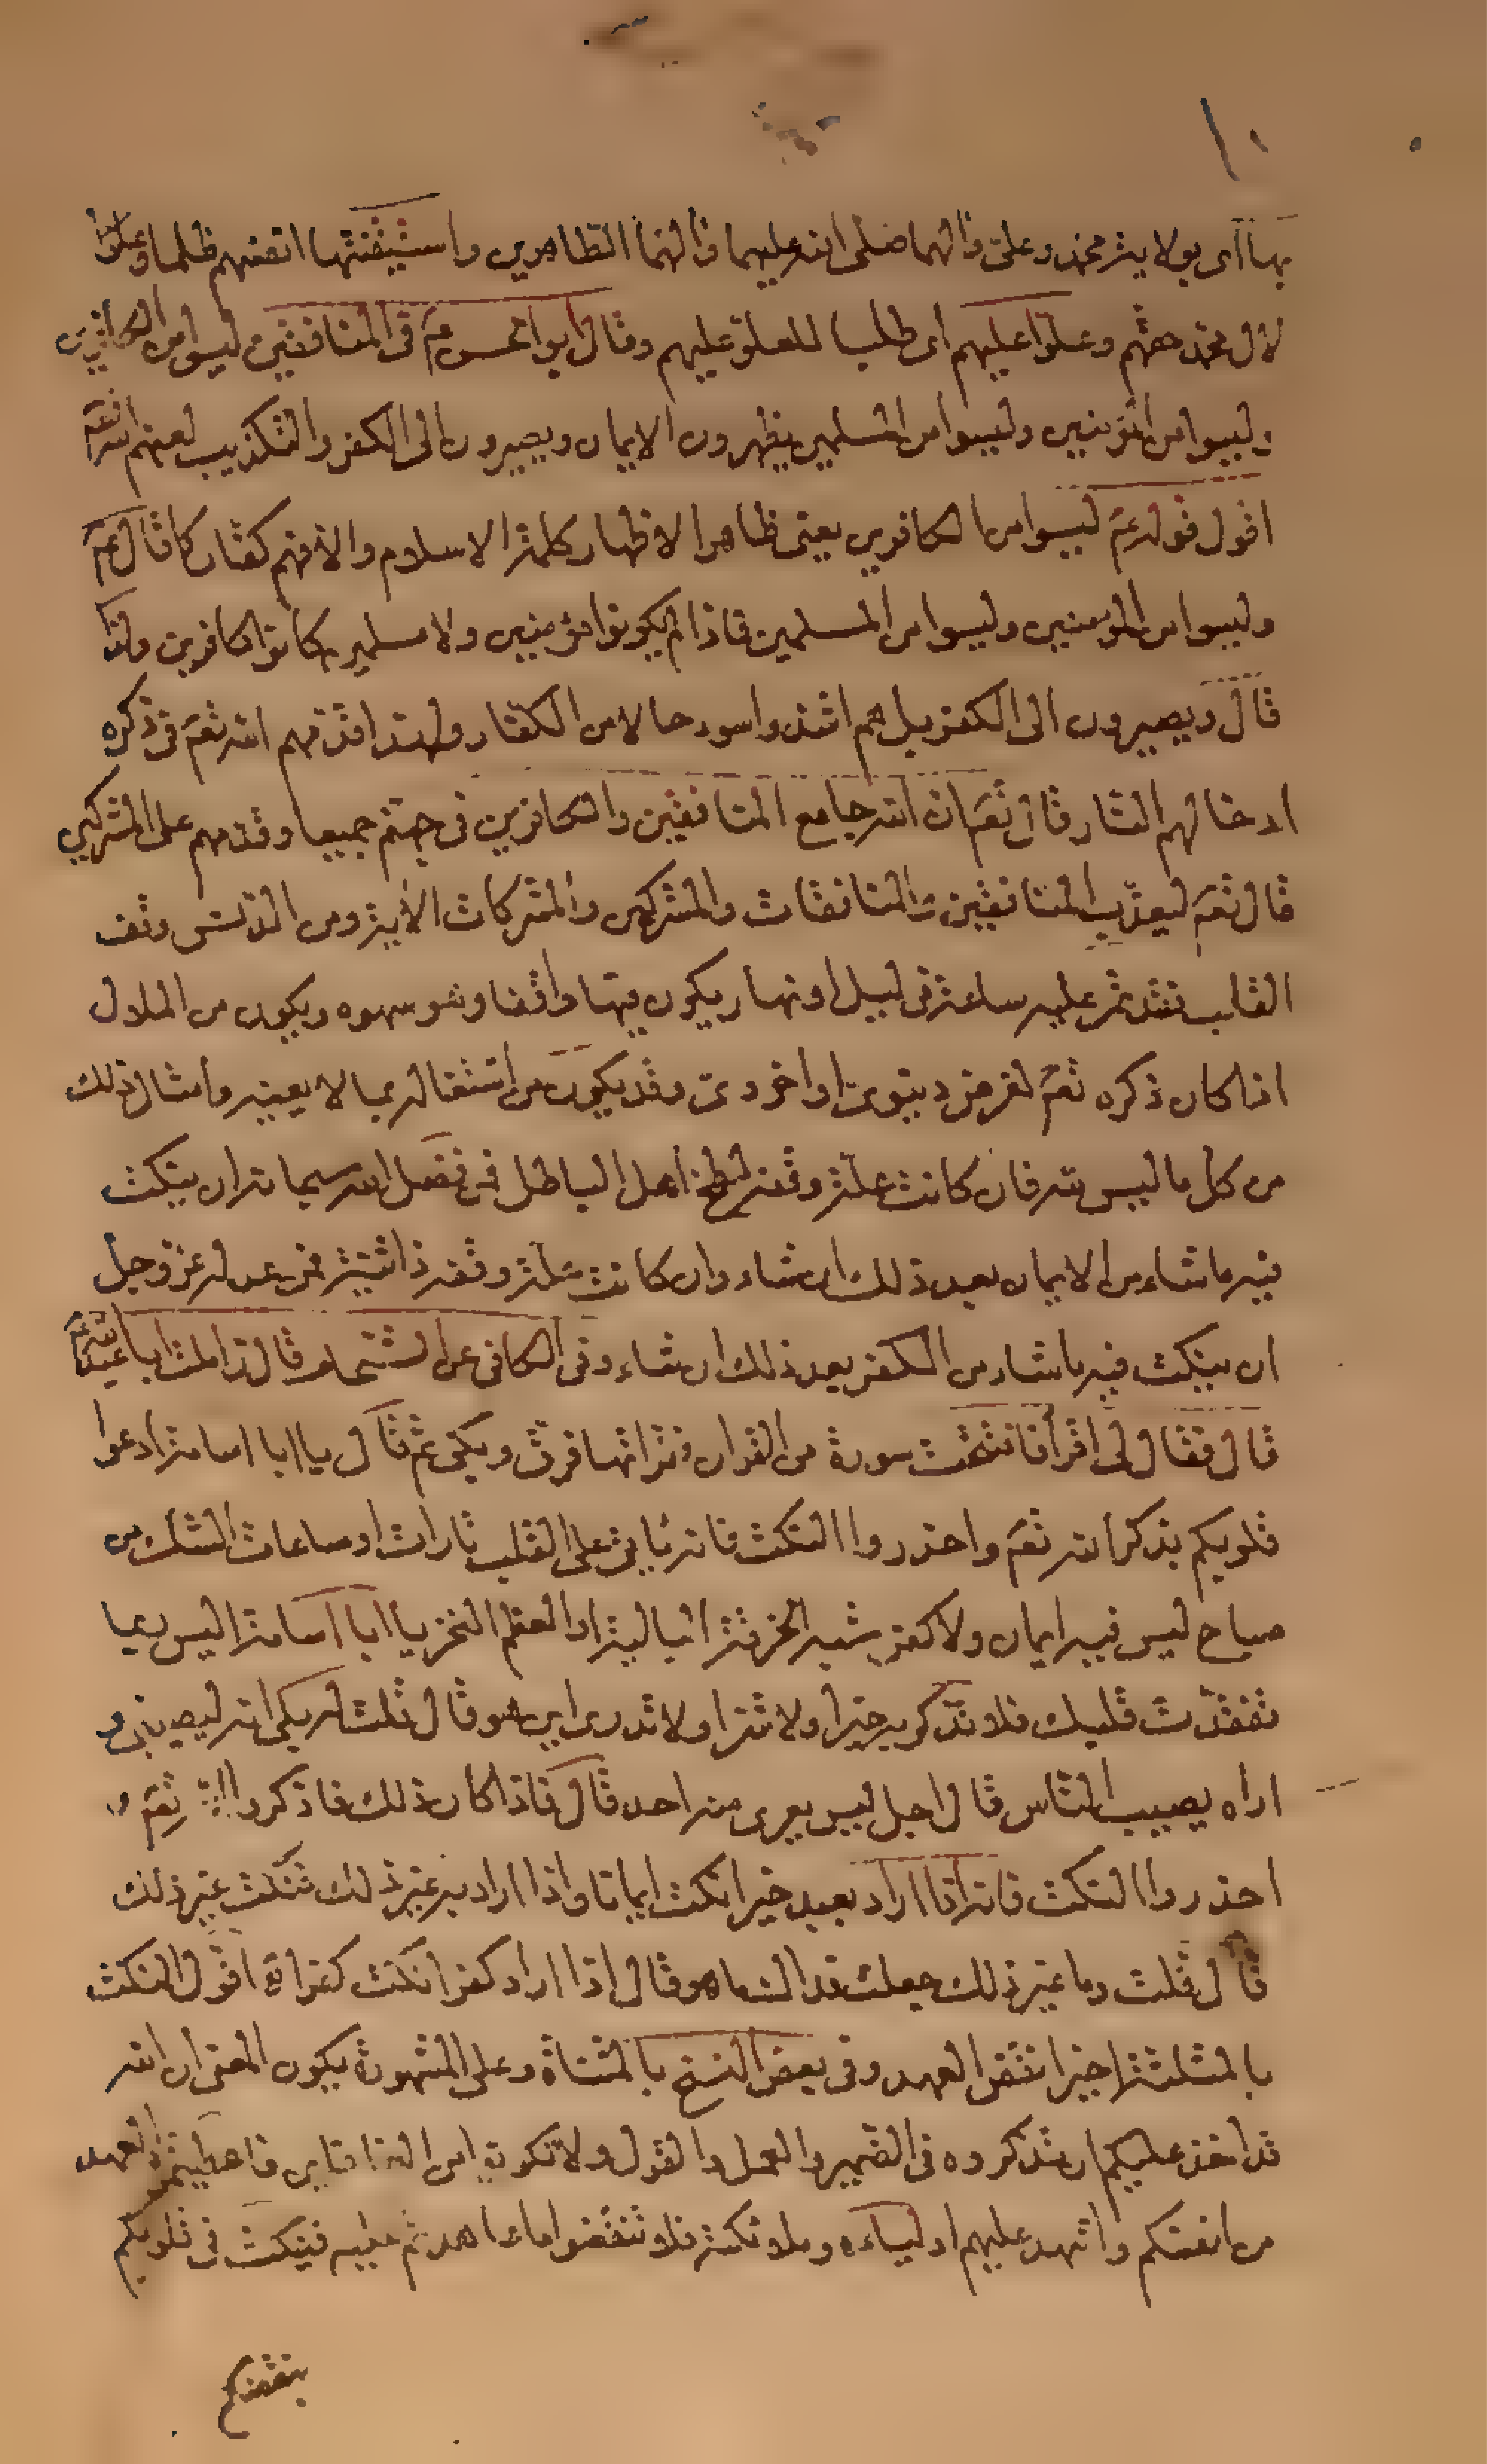 بها اى بولاية محمد وعلى وآلهما صلى الله عليهما وآلهما الطاهرين واستيقنتها انفسهم ظلما وعلوا
لآل محمد حقهم وعلوا عليهم اى طلبا للعلو عليهم وقال ابو الحسن ع فى المنافقين ليسوا من الكافرين
وليسوا من المؤمنين وليسوا من المسلمين يظهرون الايمان ويصيرون الى الكفر والتكذيب لعنهم الله تعم
اقول قوله عم ليسوا من الكافرين يعنى ظاهرا لاظهار كلمة الاسلام والا فهم كفار كما قال عم
وليسوا من المؤمنين وليسوا من المسلمين فاذا لم يكونوا مؤمنين ولا مسلمين كانوا كافرين ولذا
قال ويصيرون الى الكفر بل هم اشد واسوء حالا من الكفار ولهذا قدمهم الله تعم فى ذكره
ادخالهم النار قال تعم ان الله جامع المنافقين والكافرين فى جهنم جميعا وقدمهم على المشركين
قال تعم ليعذب المنافقين والمنافقات والمشركين والمشركات الآية ومن الذى وقف
القلب فقد تمر عليه ساعة فى ليل او نهار يكون فيها واقفا وهو سهوه ويكون من الملال
اذا كان ذكره تعم لغرض دنيوى او اخروى وقد يكون من اشتغاله بما لا يعنيه وامثال ذلك
من كل ما ليس لله فان كانت علة وقفه لطخ اهل الباطل فمن فضل الله سبحانه ان ينكث
فيه ما شاء من الايمان بعد ذلك ان شاء وان كانت علة وقفه ذاتية فمن عدله عز وجل
ان ينكث فيه ما شاء من الكفر بعد ذلك ان شاء وفى الكافى عن الشحام قال زاملت ابا عبد الله عم
قال فقال لى اقرأ فافتتحت سورة من القران فقراتها فرق وبكى ثم قال يا ابا اسامة ادعوا
قلوبكم بذكر الله تعم واحذروا النكث فانه ياتى على القلب تارات او ساعات الشك من
صباح ليس فيه ايمان ولا كفر شبه الخرقة البالية او العظم النخر يا ابا اسامة اليس ربما
تفقدت قلبك فلا تذكر به خيرا ولا شرا ولا تدرى اين هو قال قلت له بلى انه ليصيبنى و
اراه يصيب الناس قال اجل ليس يعرى منه احد قال فاذا كان ذلك فاذكروا الله تعم و
احذروا النكث فانه اذا اراد بعبد خيرا نكث ايمانا واذا اراد به غير ذلك نكث غير ذلك
قال قلت وما غير ذلك جعلت فداك ما هو قال اذا اراد كفرا نكث كفرا اقول النكث
بالمثلثة اخيرا نقض العهد وفى بعض النسخ بالمثناة وعلى المشهورة يكون المعنى ان الله
قد اخذ عليكم ان تذكروه فى الضمير والعمل والقول ولا تكونوا من الغافلين فاعطيتم العهد
من انفسكم واشهد عليهم اولياءه وملائكته فلا تنقضوا ما عاهدتم عليه فينكث فى قلوبكم
بنقضكم